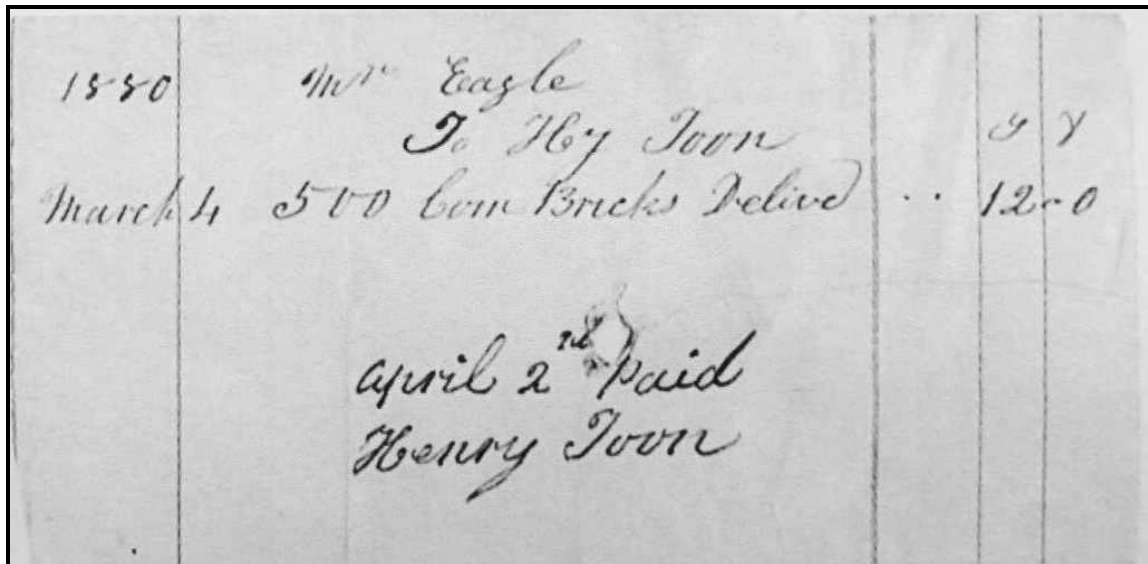 1880 Mr Eagle
To Hy Toon
March 4 500 Com Bricks Delivd .. 12-0
April 2nd Paid
Henry Toon